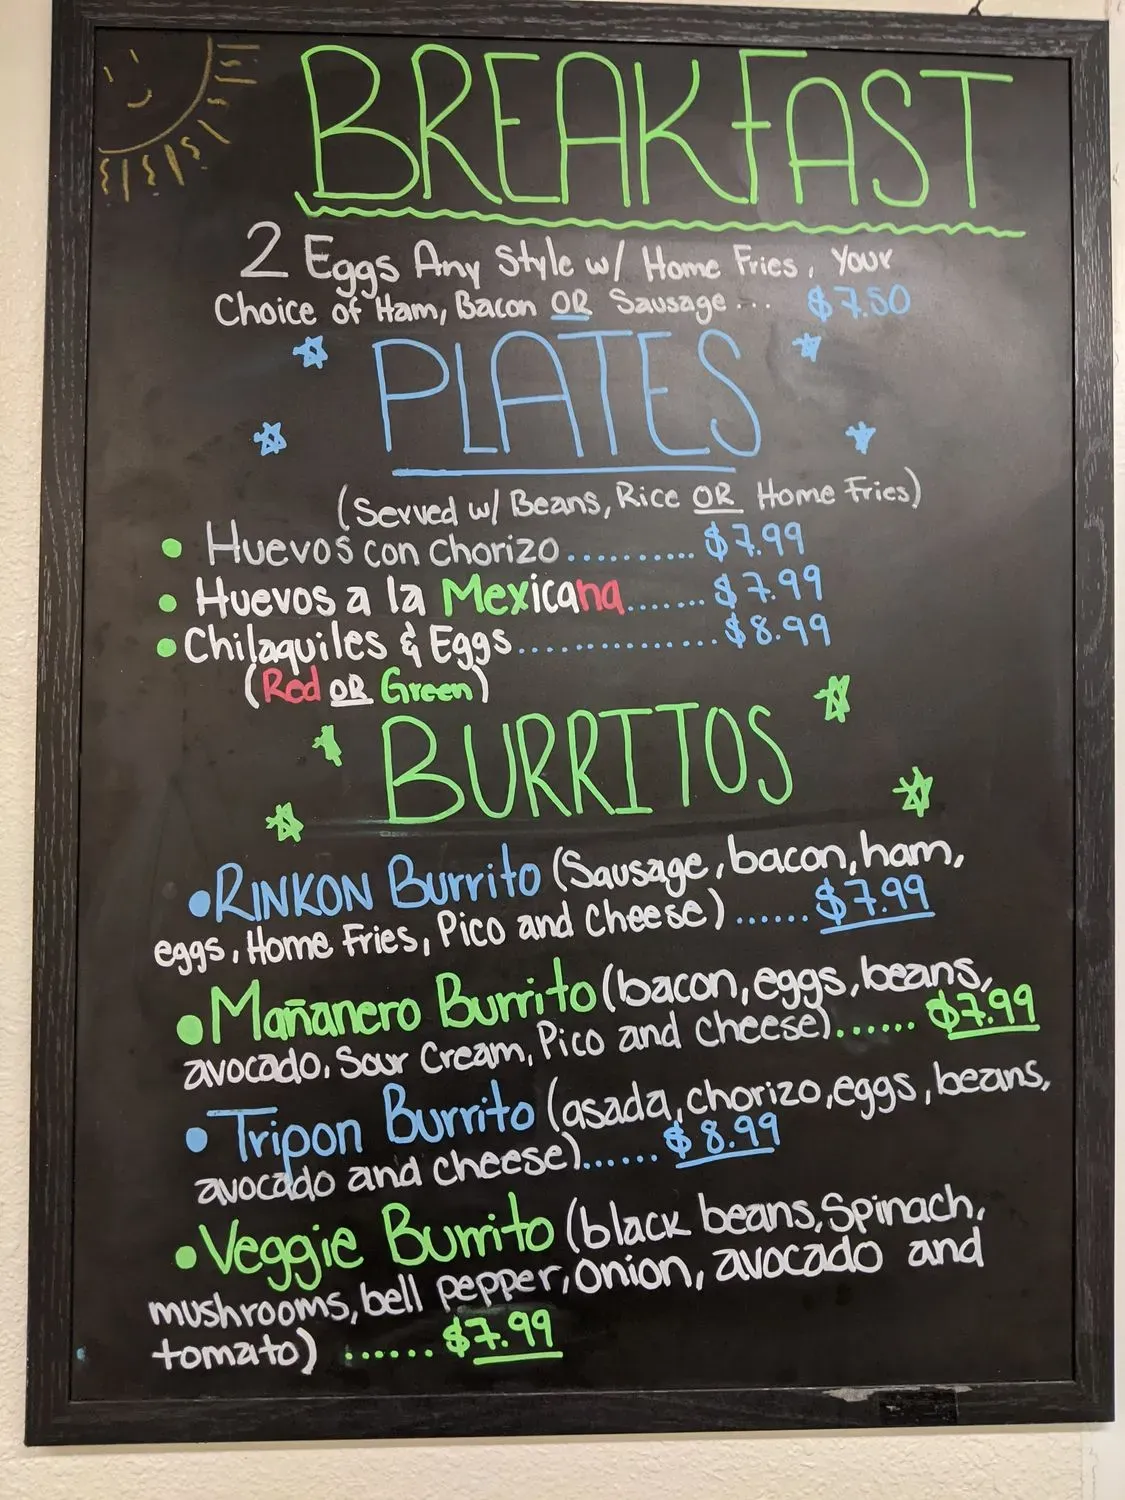 BREAKFAST
2 Eggs Any Style w/ Home Fries, Your
Choice of Ham, Bacon OR Sausage... $7.50
PLATES
(Served w/ Beans, Rice OR Home Fries)
• Huevos con chorizo.......... $7.99
• Huevos a la Mexicana....... $7.99
• Chilaquiles & Eggs............... $8.99
(Red OR Green)
BURRITOS
• RINKON Burrito (Sausage, bacon, ham,
eggs, Home Fries, Pico and Cheese)...... $7.99
• Mañanero Burrito (bacon, eggs, beans,
avocado, Sour Cream, Pico and cheese)...... $7.99
• Tripon Burrito (asada, chorizo, eggs, beans,
avocado and cheese)...... $8.99
• Veggie Burrito (black beans, Spinach,
mushrooms, bell pepper, Onion, avocado and
tomato) ...... $7.99